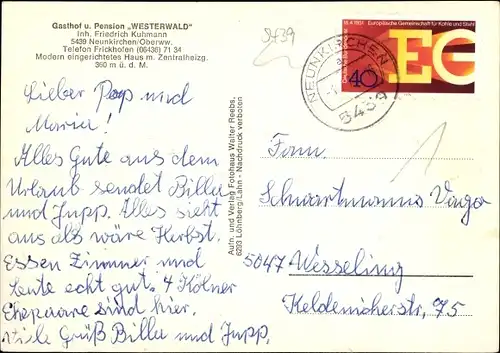 Gasthof u. Pension „WESTERWALD"
Inh. Friedrich Kuhmann
5439 Neunkirchen/Oberww.
Telefon Frickhofen (06436) 71 34
Modern eingerichtetes Haus m. Zentralheizg.
360 m ü. d. M.
Lieber Pepp und
Maria!
Alles Gute aus dem
Urlaub sendet Billa
und Jupp. Alles sieht
aus als wäre Herbst.
Essen Zimmer und
Leute echt gut. 4 Kölner
Ehepaare sind hier.
Viele Grüß Billa und Jupp.
Aufn. und Verlag Fotohaus Walter Reebs,
6293 Löhnberg/Lahn - Nachdruck verboten
5439
NEUNKIRCHEN
5439
18.4.1951 Europäische Gemeinschaft für Kohle und Stahl
Deutsche Bundespost
40
EG
Fam.
Schwartmanns
5047 Wesseling
Keldenicherstr. 75